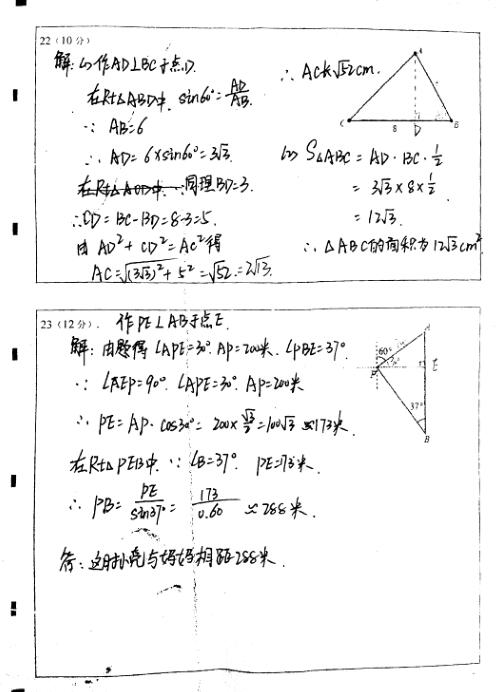 22 (10分)
解: (1)作AD⊥BC于点D.
在Rt△ABD中, sin60°=AD/AB.
∵ AB=6
∴ AD=6×sin60°=3√3.
同理BD=3.
∴CD=BC-BD=8-3=5.
由 AD²+CD²=AC²得
AC=√(3√3)²+5²=√52=2√13.
∴ AC长√52cm.
A
C
8
D
B
(2) S△ABC = AD·BC·1/2
= 3√3×8×1/2
= 12√3.
∴ △ABC的面积为12√3cm²
23 (12分). 作PE⊥AB于点E.
解: 由题得∠APE=30°. AP=200米. ∠PBE=37°.
∵ ∠AEP=90°. ∠APE=30°. AP=200米
∴ PE=AP·cos30°=200×√3/2=100√3≈173米.
在Rt△PEB中. ∵ ∠B=37°. PE=173米.
∴ PB=PE/sin37°=173/0.60≈288米.
答: 这时小亮与妈妈相距288米.
60°
P
E
37°
B